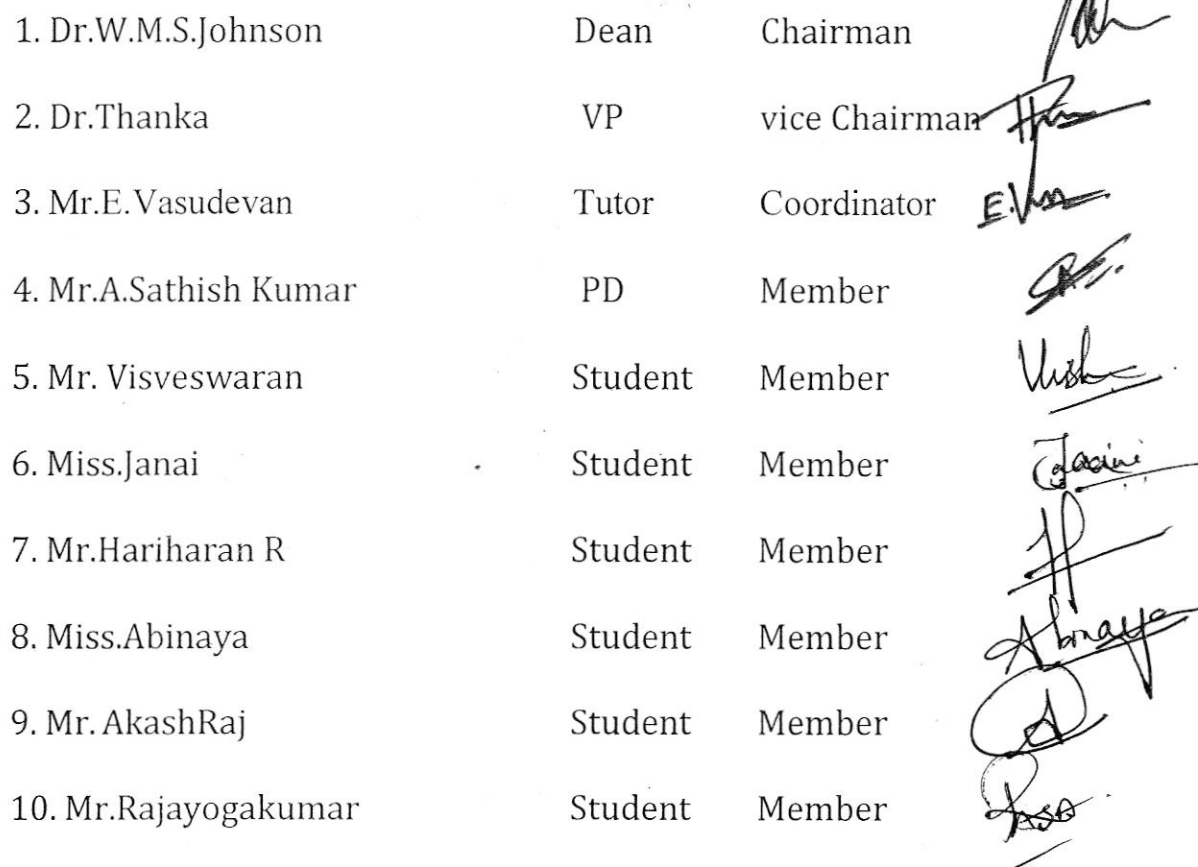 1. Dr.W.M.S.Johnson Dean Chairman
2. Dr.Thanka VP vice Chairman
3. Mr.E.Vasudevan Tutor Coordinator E.Vas
4. Mr.A.Sathish Kumar PD Member
5. Mr. Visveswaran Student Member
6. Miss.Janai Student Member
7. Mr.Hariharan R Student Member
8. Miss.Abinaya Student Member Abinaya
9. Mr. AkashRaj Student Member
10. Mr.Rajayogakumar Student Member